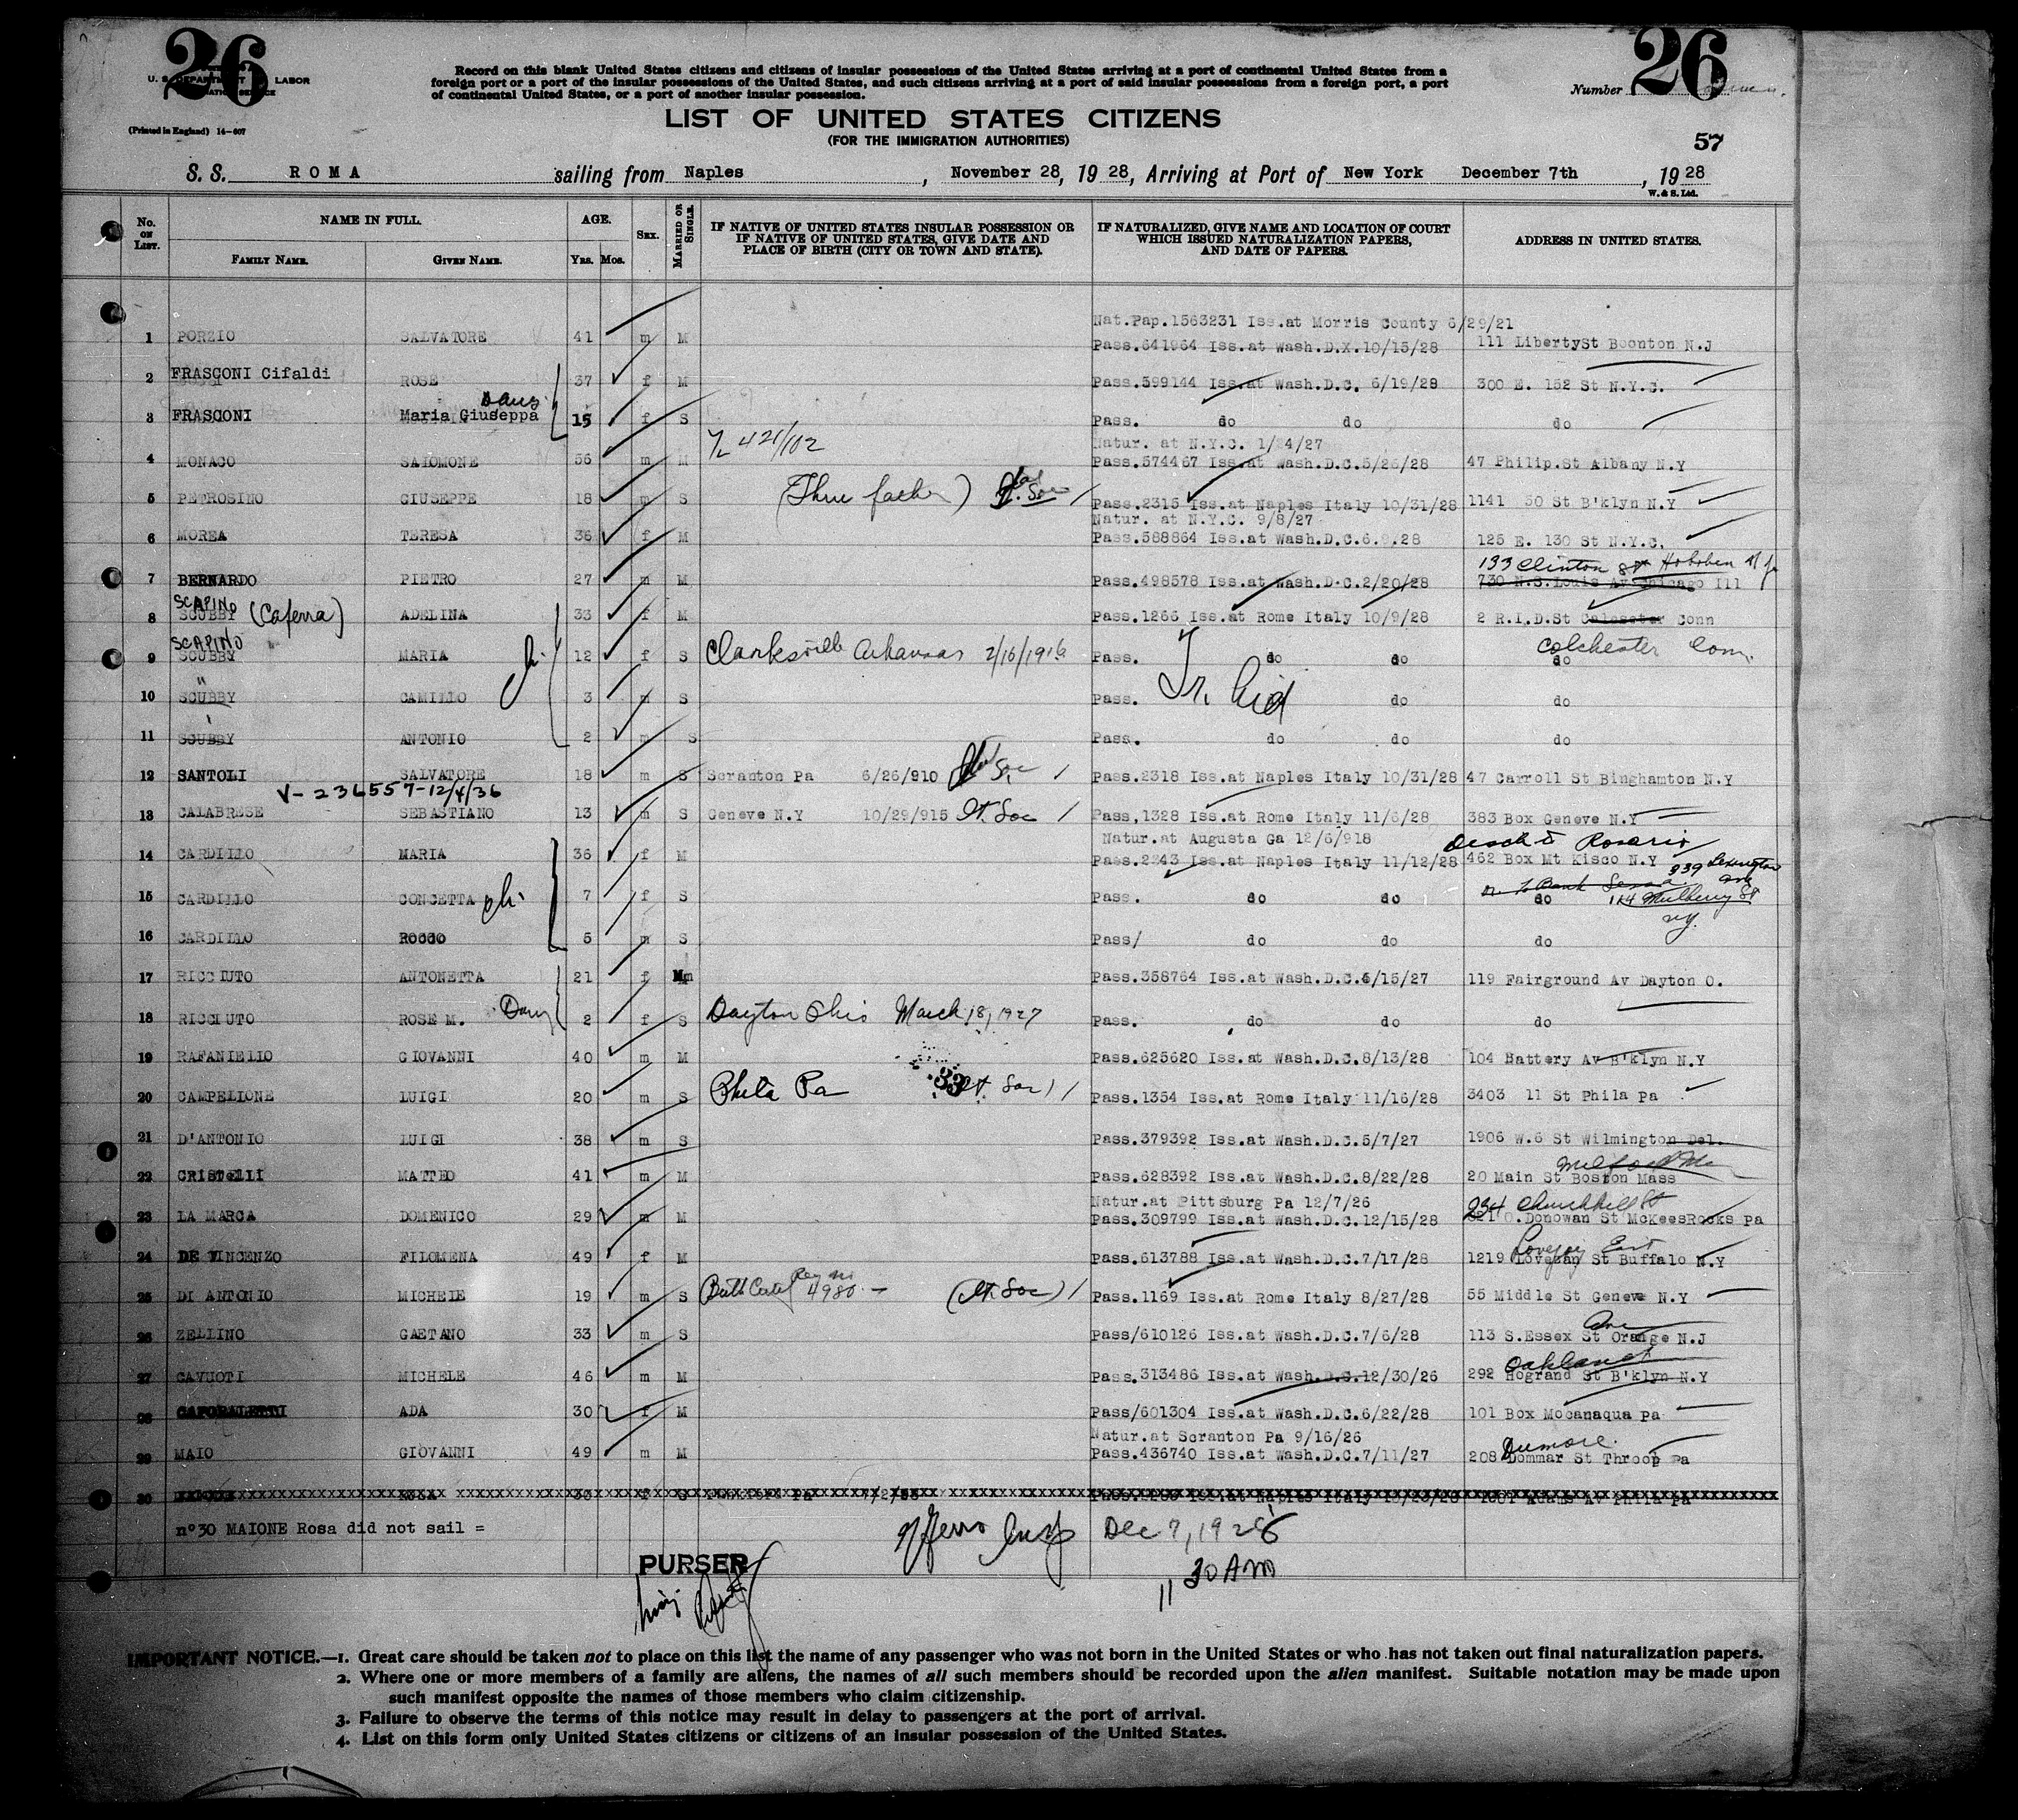 26
26
U. S. DEPARTMENT OF LABOR
Record on this blank United States citizens and citizens of insular possessions of the United States arriving at a port of continental United States from a
foreign port or a port of the insular possessions of the United States, and such citizens arriving at a port of said insular possessions from a foreign port, a port
of continental United States, or a port of another insular possession.
Number
(Printed in England) 14-607
LIST OF UNITED STATES CITIZENS
(FOR THE IMMIGRATION AUTHORITIES)
57
S. S. ROMA sailing from Naples, November 28, 1928, Arriving at Port of New York December 7th, 1928
W. & S. Ltd.
No. ON LIST. NAME IN FULL. AGE. SEX. MARRIED OR SINGLE. IF NATIVE OF UNITED STATES INSULAR POSSESSION OR IF NATIVE OF UNITED STATES, GIVE DATE AND PLACE OF BIRTH (CITY OR TOWN AND STATE). IF NATURALIZED, GIVE NAME AND LOCATION OF COURT WHICH ISSUED NATURALIZATION PAPERS, AND DATE OF PAPERS. ADDRESS IN UNITED STATES.
FAMILY NAME. GIVEN NAME. YRS. MOS.
Nat.Pap.1563231 Iss.at Morris County 6/29/21
1 PORZIO SALVATORE 41 m M Pass.641964 Iss.at Wash.D.X.10/15/28 111 LibertySt Boonton N.J
2 FRASCONI Cifaldi ROSE 37 f M Pass.599144 Iss.at Wash.D.C. 6/19/28 300 E. 152 St N.Y.C.
Daug.
3 FRASCONI Maria Giuseppa 15 f S Pass. do do do
Natur. at N.Y.C. 1/24/27
4 MONACO SALOMONE 56 m M 421/102 Pass.574467 Iss.at Wash.D.C.5/26/28 47 Philip.St Albany N.Y
5 PETROSINO GIUSEPPE 18 m S (Thru father) Pass.2315 Iss.at Naples Italy 10/31/28 1141 50 St B'klyn N.Y
Natur. at N.Y.C. 9/8/27
6 MOREA TERESA 36 f M Pass.588864 Iss.at Wash.D.C.6.9.28 125 E. 130 St N.Y.C.
133 Clinton St Hoboken N J
7 BERNARDO PIETRO 27 m M Pass.498578 Iss.at Wash.D.C.2/20/28 730 N.S.Louis Av Chicago Ill
SCAPINO
8 SCUBBY (Caferra) ADELINA 33 f M Pass.1266 Iss.at Rome Italy 10/9/28 2 R.I.D.St Colcester Conn
SCAPINO Colchester Conn.
9 SCUBBY MARIA 12 f S Clarksville Arkansas 2/16/1916 Pass. do do do
10 SCUBBY CAMILLO 3 m S Pass. do do
11 SCUBBY ANTONIO 2 m S Pass. do do do
12 SANTOLI SALVATORE 18 m S Scranton Pa 6/26/910 Pass.2318 Iss.at Naples Italy 10/31/28 47 Carroll St Binghamton N.Y
V-236557-12/4/36
13 CALABRESE SEBASTIANO 13 m S Geneve N.Y 10/29/915 It. Soc Pass.1328 Iss.at Rome Italy 11/6/28 383 Box Geneve N.Y
Natur.at Augusta Ga 12/6/918
14 CARDILLO MARIA 36 f M Pass.2243 Iss.at Naples Italy 11/12/28 462 Box Mt Kisco N.Y
339 Lexington Ave
15 CARDILLO CONCETTA ch. 7 f S Pass. do do do 184 Mulberry St
N.Y.
16 CARDILLO ROCCO 5 m S Pass/ do do do
17 RICCIUTO ANTONETTA 21 f Mm Pass.358764 Iss.at Wash.D.C.6/15/27 119 Fairground Av Dayton O.
18 RICCIUTO ROSE M. Daug 2 f S Dayton Ohio March 18, 1927 Pass. do do do
19 RAFANIELLO GIOVANNI 40 m M Pass.625620 Iss.at Wash.D.C.8/13/28 104 Battery Av B'klyn N.Y
20 CAMPELIONE LUIGI 20 m S Phila Pa It. Soc Pass.1354 Iss.at Rome Italy 11/16/28 3403 11 St Phila Pa
21 D'ANTONIO LUIGI 38 m S Pass.379392 Iss.at Wash.D.C.5/7/27 1906 W.6 St Wilmington Del.
22 CRISTELLI MATTEO 41 m M Pass.628392 Iss.at Wash.D.C.8/22/28 20 Main St Boston Mass
Natur.at Pittsburg Pa 12/7/26 234 Churchhill St
23 LA MARCA DOMENICO 29 m M Pass.309799 Iss.at Wash.D.C.12/15/28 O.Donowan St McKeesRocks Pa
Lovejoy East
24 DE VINCENZO FILOMENA 49 f M Pass.613788 Iss.at Wash.D.C.7/17/28 1219 Lovegan St Buffalo N.Y
25 DI ANTONIO MICHELE 19 m S Birth Certf Reg no 4980 - (It. Soc) Pass.1169 Iss.at Rome Italy 8/27/28 55 Middle St Geneve N.Y
Ave
26 ZELLINO GAETANO 33 m S Pass/610126 Iss.at Wash.D.C.7/6/28 113 S.Essex St Orange N.J
Oakland
27 CAVUOTI MICHELE 46 m M Pass.313486 Iss.at Wash.D.C.12/30/26 292 Hogrand St B'klyn N.Y
28 CAPORALETTI ADA 30 f M Pass/601304 Iss.at Wash.D.C.6/22/28 101 Box Mocanaqua Pa
Natur.at Scranton Pa 9/16/26 Dunmore
29 MAIO GIOVANNI 49 m M Pass.436740 Iss.at Wash.D.C.7/11/27 208 Dommar St Throop Pa
30 ROSA
n°30 MAIONE Rosa did not sail =
Dec 7, 1928
11 30 AM
PURSER
IMPORTANT NOTICE.—1. Great care should be taken not to place on this list the name of any passenger who was not born in the United States or who has not taken out final naturalization papers.
2. Where one or more members of a family are aliens, the names of all such members should be recorded upon the alien manifest. Suitable notation may be made upon
such manifest opposite the names of those members who claim citizenship.
3. Failure to observe the terms of this notice may result in delay to passengers at the port of arrival.
4. List on this form only United States citizens or citizens of an insular possession of the United States.